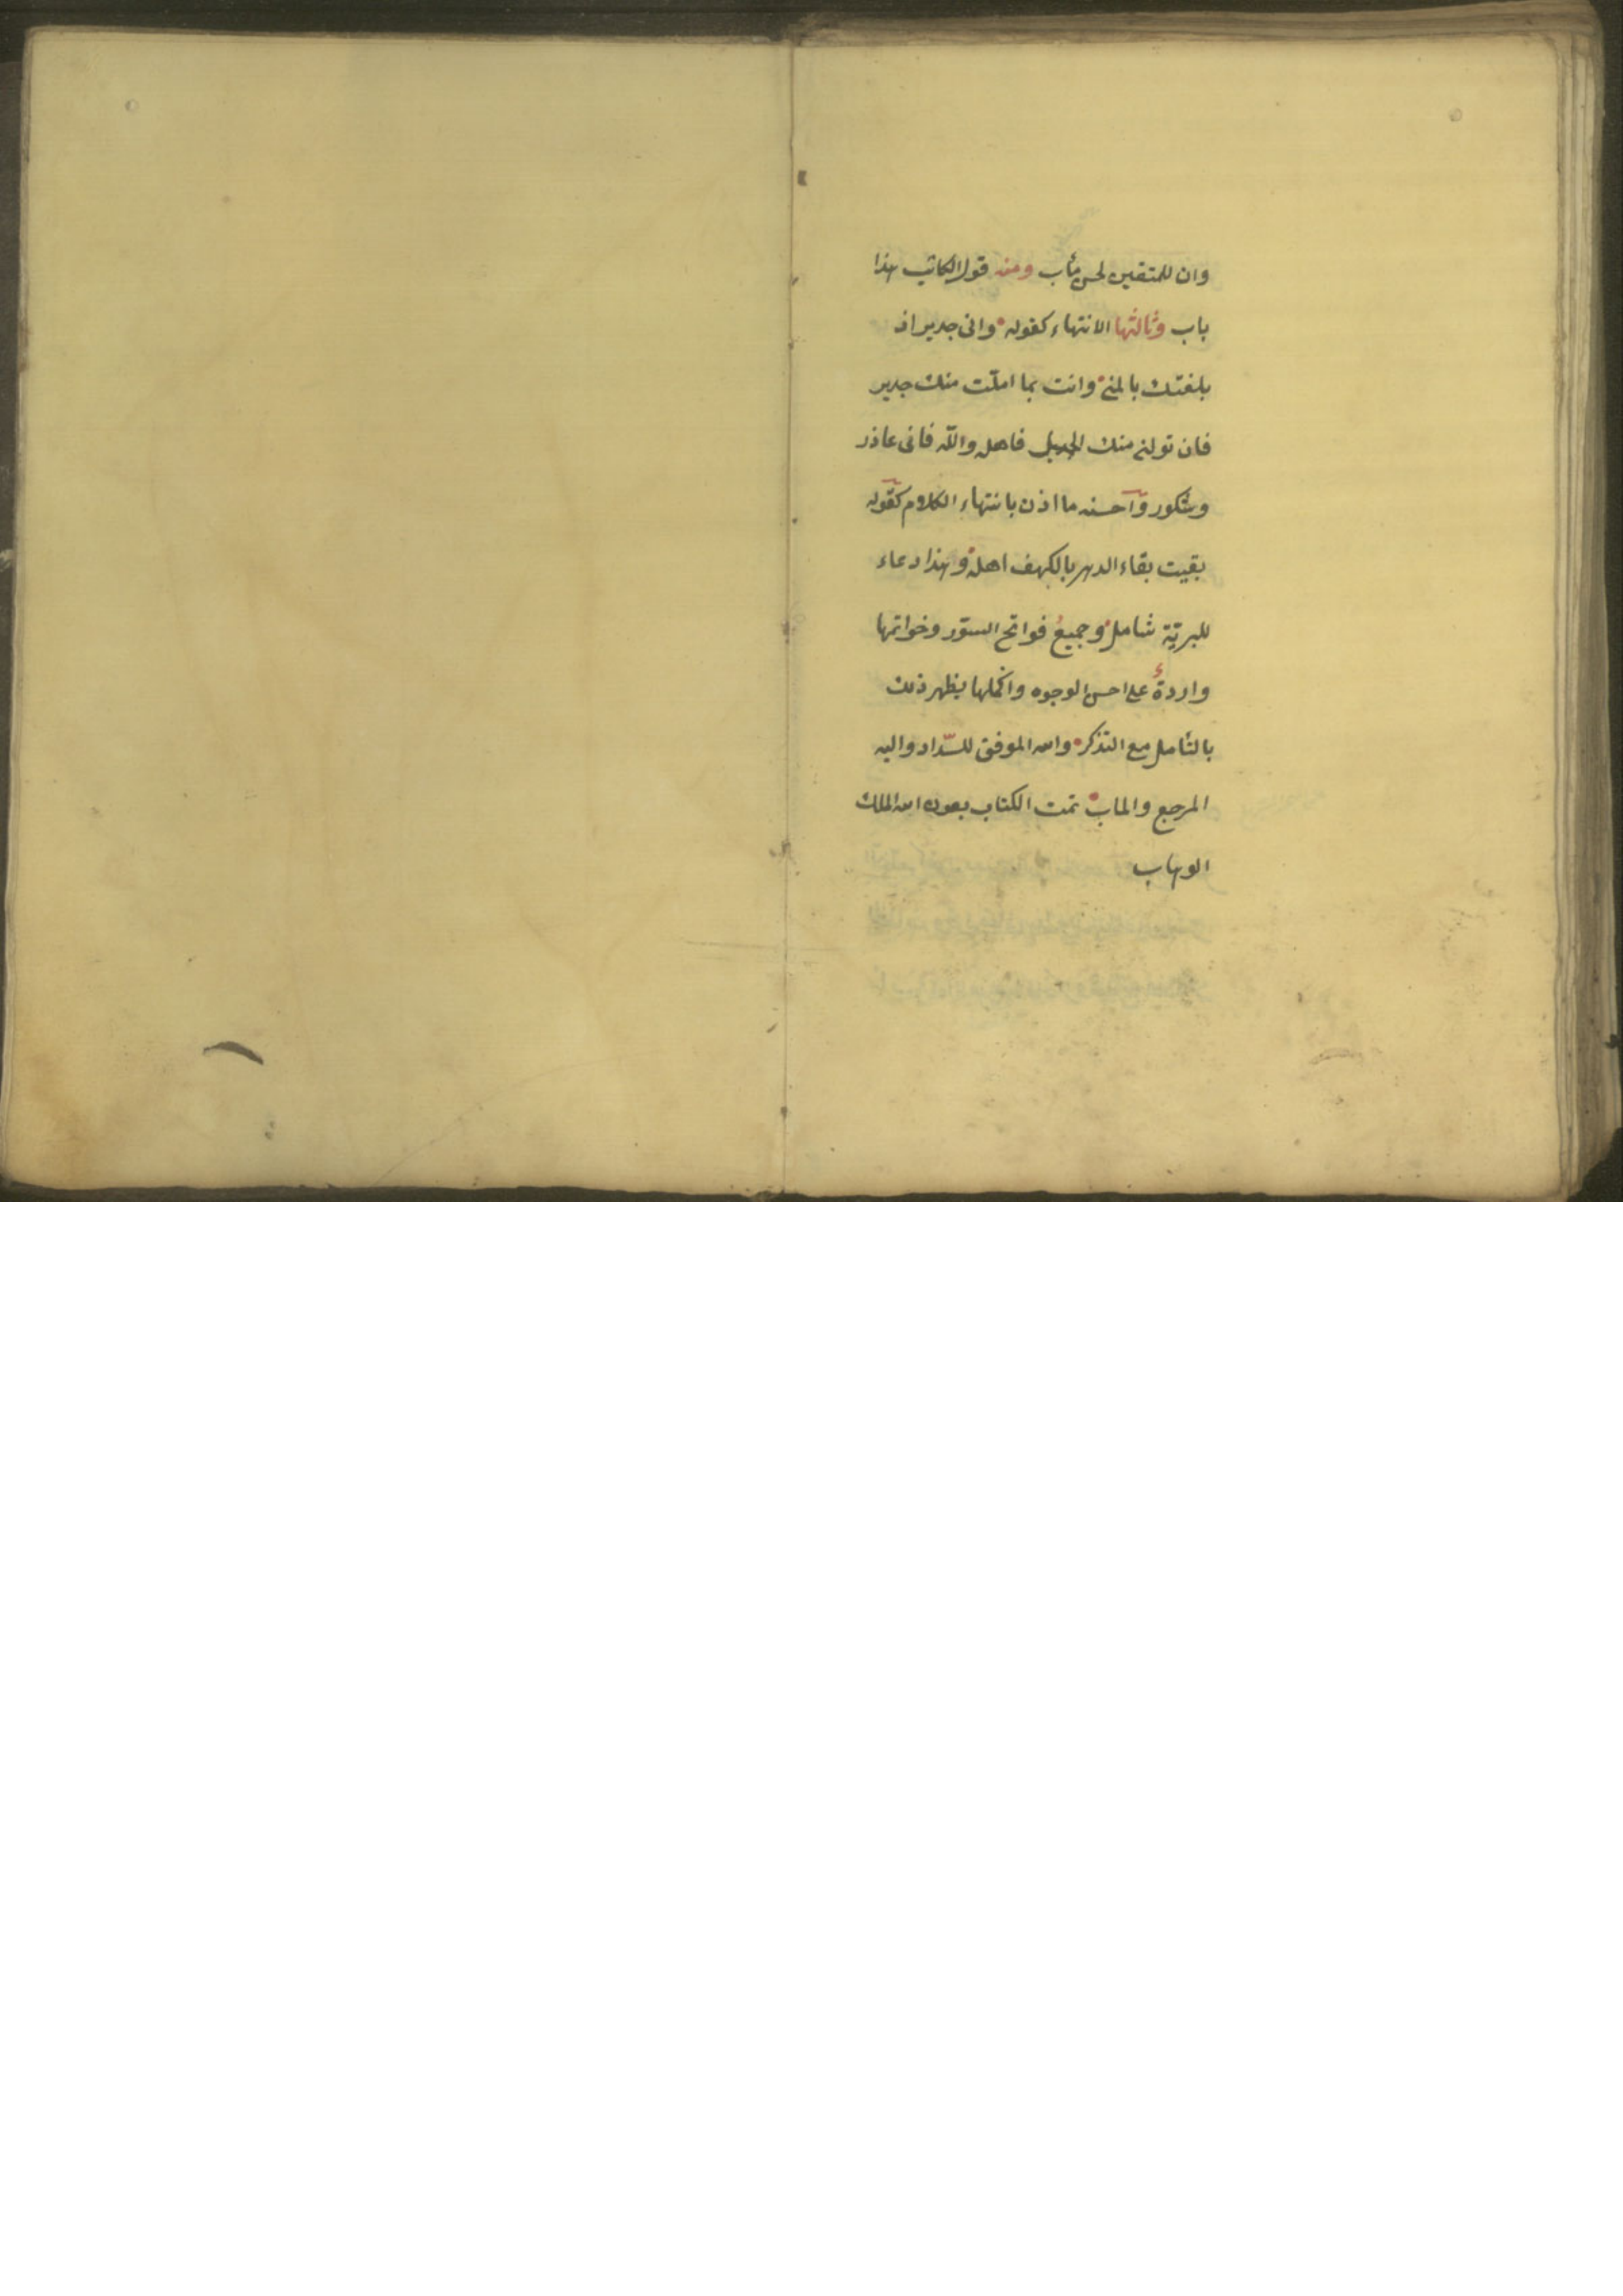 وان للمتقين لحسن مأب ومنه قول الكاتب هذا
باب وثالثها الانتهاء كقوله وانى جدير اذ
بلغتك بالمنى وانت بما املت منك جدير
فان تولنى منك الجميل فاهله والا فانى عاذر
وشكور وآحسنه ما اذن بانتهاء الكلام كقوله
بقيت بقاء الدهر يا كهف اهله وهذا دعاء
للبريّة شامل وجميعُ فواتح السّور وخواتمها
واردةٌ على احسن الوجوه واكملها يظهر ذلك
بالتأمل مع التذكر والله الموفق للسّداد واليه
المرجع والماب تمت الكتاب بعون الله الملك
الوهاب